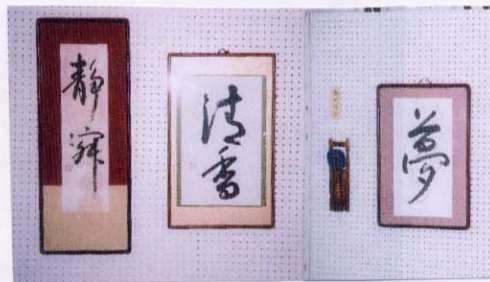 静寂
清香
夢